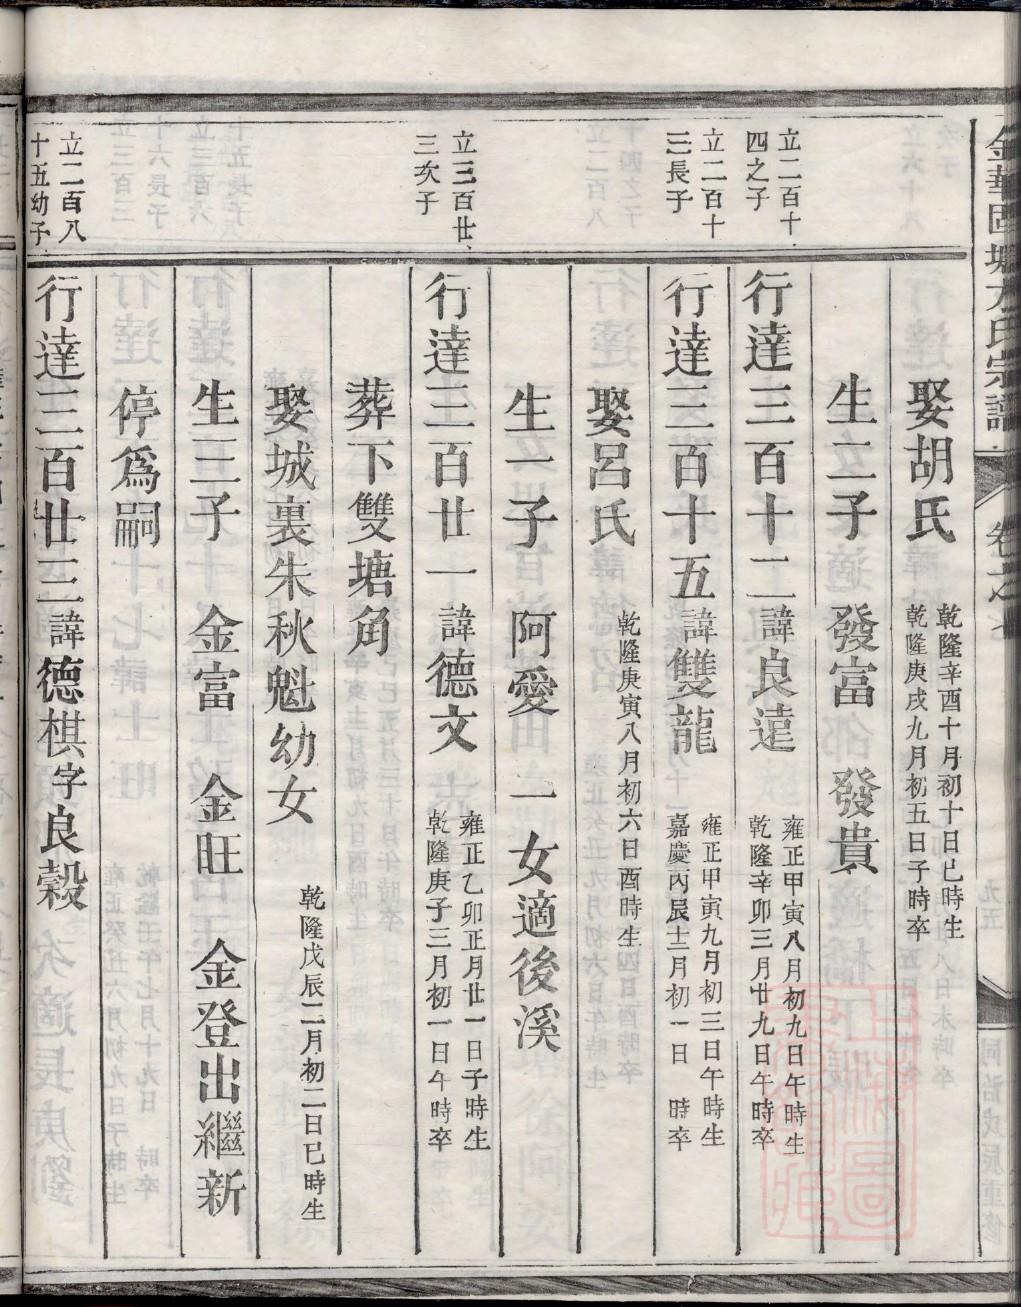 娶胡氏
乾隆辛酉十月初十日巳時生
乾隆庚戌九月初五日子時卒
生二子 發富 發貴
立二百十
四之子
行達三百十二諱良遠
雍正甲寅八月初九日午時生
乾隆辛卯三月廿九日午時卒
立二百十
三長子
行達三百十五諱雙龍
雍正甲寅九月初三日午時生
嘉慶丙辰十二月初一日 時卒
娶呂氏
乾隆庚寅八月初六日酉時生
生一子 阿愛 一女適後溪
立三百廿
三次子
行達三百廿一諱德文
雍正乙卯正月廿一日子時生
乾隆庚子三月初一日午時卒
葬下雙塘角
娶城裏朱秋魁幼女
乾隆戊辰二月初二日巳時生
生三子 金富 金旺 金登出繼新
停爲嗣
立二百八
十五幼子
行達三百廿三諱德棋字良榖